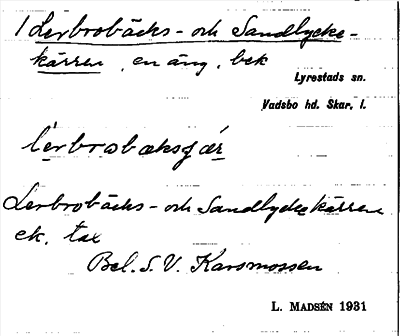 / Lerbrobäcks- och Sandlycke-
kärren, en äng, bek
Lyrestads sn.
Vadsbo hd. Skar. l.
Lerbrobäcks- och Sandlyckekärren
ek. tax
Bel. S. V. Karsmossen
L. MADSÉN 1931